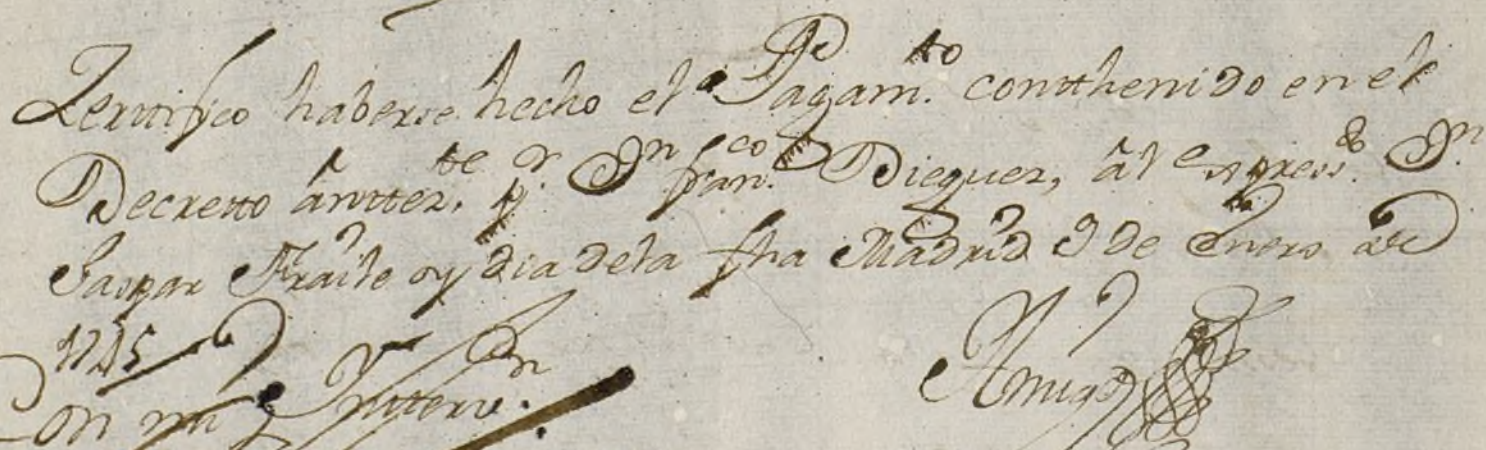 Zerttifico haberse hecho el Pagam.to contthenido en el
Decretto ânttez.te p.r D.n fran.co Dieguez, âl express.do D.n
Gaspar Fraile oy dia dela fha Madrid 9 de Enero de
1745
Amigo
Con mi Intterv.on